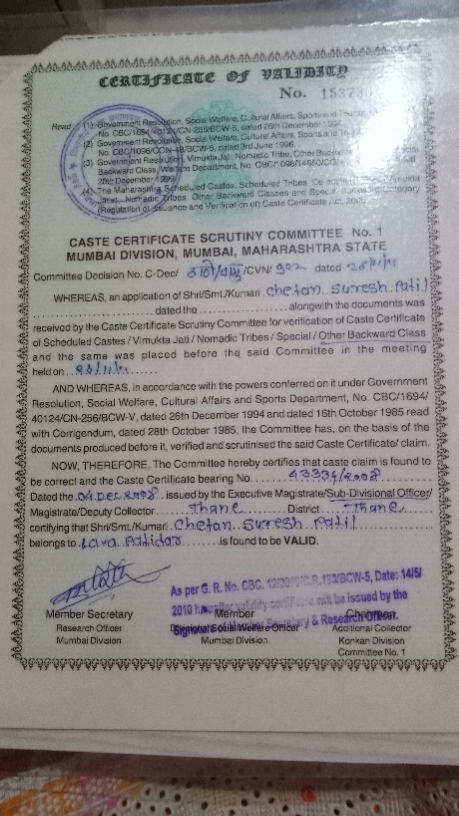 CERTIFICATE OF VALIDITY
No.
Read (1) Government Resolution, Social Welfare, Cultural Affairs, Sports and
No. CBC/1694/40124/CN-256/BCW-5, dated 26th December 1994
(2) Government Resolution, Social Welfare, Cultural Affairs, Sports and
dated 3rd June 1996
(3) Government Resolution, Vimukta Jati, Nomadic Tribe, Other
Backward Class, Welfare Department, No.
(4) The Maharashtra Scheduled Castes, Scheduled Tribes,
Nomadic Tribes, Other Backward Classes and Special Category
(Regulation of Issuance and Verification of) Caste Certificate
CASTE CERTIFICATE SCRUTINY COMMITTEE No. 1
MUMBAI DIVISION, MUMBAI, MAHARASHTRA STATE
Committee Decision No. C-Dec/ /CVN/ dated
WHEREAS, an application of Shri/Smt./Kumari Chetan Suresh Patil
dated the alongwith the documents was
received by the Caste Certificate Scrutiny Committee for verification of Caste Certificate
of Scheduled Castes / Vimukta Jati / Nomadic Tribes / Special / Other Backward Class
and the same was placed before the said Committee in the meeting
held on
AND WHEREAS, in accordance with the powers conferred on it under Government
Resolution, Social Welfare, Cultural Affairs and Sports Department, No. CBC/1694/
40124/CN-256/BCW-V, dated 26th December 1994 and dated 16th October 1985 read
with Corrigendum, dated 28th October 1985, the Committee has, on the basis of the
documents produced before it, verified and scrutinised the said Caste Certificate/ claim.
NOW, THEREFORE, The Committee hereby certifies that caste claim is found to
be correct and the Caste Certificate bearing No. 43334/2008
Dated the 04 DEC 2008 issued by the Executive Magistrate/Sub-Divisional Officer/
Magistrate/Deputy Collector Thane District Thane
certifying that Shri/Smt./Kumari Chetan Suresh Patil
belongs to Lava Patidar is found to be VALID.
As per G. R. No. CBC. BCW-5, Date: 14/5/
2010 will be issued by the
& Research Officer.
Member Secretary Member Chairman
Research Officer Divisional Social Welfare Officer Additional Collector
Mumbai Division Mumbai Division Konkan Division
Committee No. 1